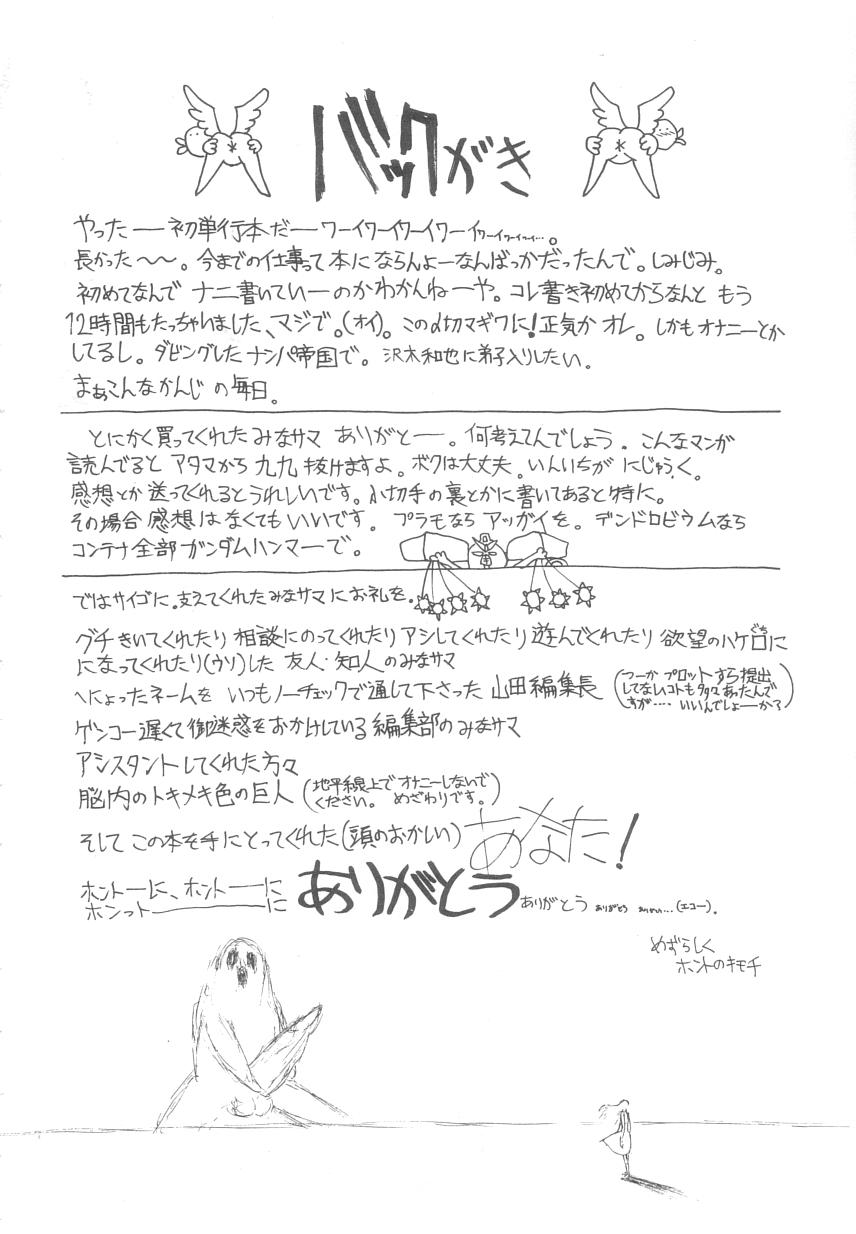 バックがき
やったー初単行本だーワーイワーイワーイワーイワーイワーイワーイ…。
長かった〜〜。今までの仕事って本にならんよーなんばっかだったんで。しみじみ。
初めてなんで ナニ書いていーのかわかんねーや。コレ書き初めてからなんと もう
12時間もたっちゃいました、マジで。(オイ)。この〆切マギワに!正気か オレ。しかもオナニーとか
してるし。ダビングしたナンパ帝国で。沢木和也に弟子入りしたい。
まぁこんなかんじの毎日。
とにかく買ってくれたみなサマ ありがとー。何考えてんでしょう。こんなマンガ
読んでると アタマから 九九 抜けますよ。ボクは大丈夫。いんいちが にじゅうく。
感想とか送ってくれるとうれしいです。小切手の裏とかに書いてあると特に。
その場合 感想はなくてもいいです。プラモなら アッガイを。デンドロビウムなら
コンテナ全部ガンダムハンマーで。
ではサイゴに。支えてくれたみなサマにお礼を。
グチきいてくれたり 相談にのってくれたり アシしてくれたり 遊んでくれたり 欲望のハケ口(ぐち)に
になってくれたり(ウソ)した 友人・知人のみなサマ
へにょったネームを いつもノーチェックで通して下さった 山田編集長
(つーか プロットすら提出
してないコトも多々あったんで
すが…. いいんでしょーか?)
ゲンコー遅くて御迷惑をおかけしている編集部のみなサマ
アシスタントしてくれた方々
脳内のトキメキ色の巨人
(地平線上でオナニーしないで
ください。めざわりです。)
そして この本を手にとってくれた(頭のおかしい) あなた!
ホントーに、ホントーに
ホンっトーーに ありがとう ありがとう ありがとう ありがとう…(エコー)。
めずらしく
ホントのキモチ